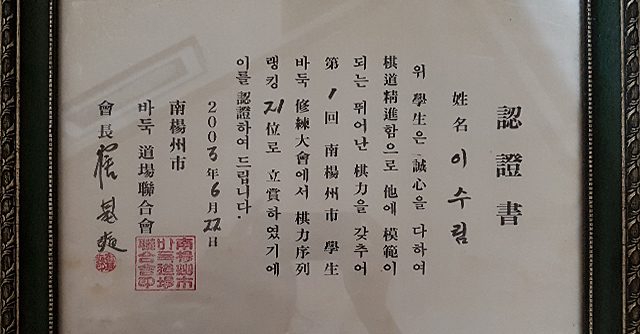 認證書
姓名 이수림
위 學生은 誠心을 다하여
棋道精進함으로 他에 模範이
되는 뛰어난 棋力을 갖추어
第1回 南楊州市 學生
바둑 修練大會에서 棋力序列
랭킹 21位로 立賞하였기에
이를 認證하여 드립니다.
2003年 6月 22日
南楊州市
바둑 道場聯合會
會長
南楊州市
바둑道場
聯合會印